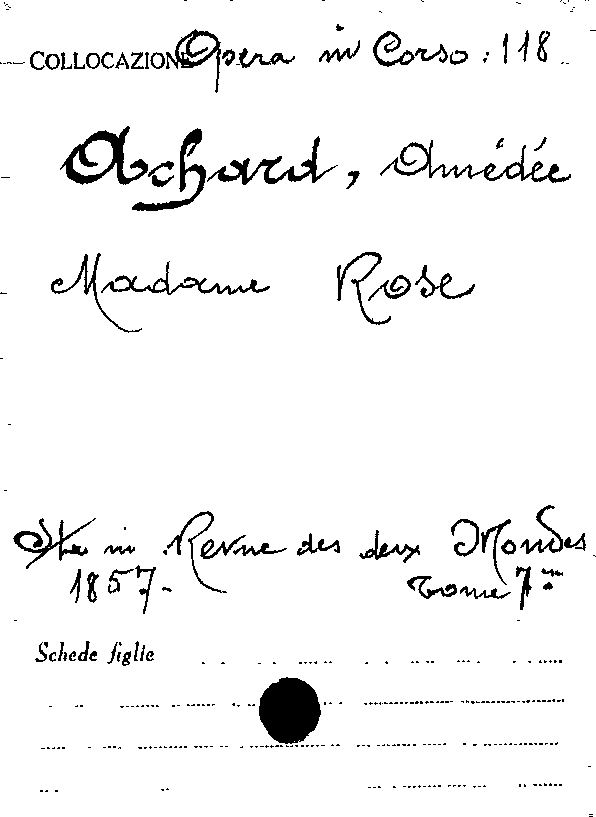 COLLOCAZIONE Opera in Corso : 118
Achard, Amédée
Madame Rose
Sta in Revue des deux Mondes
1857. - Tome 7 me
Schede figlie